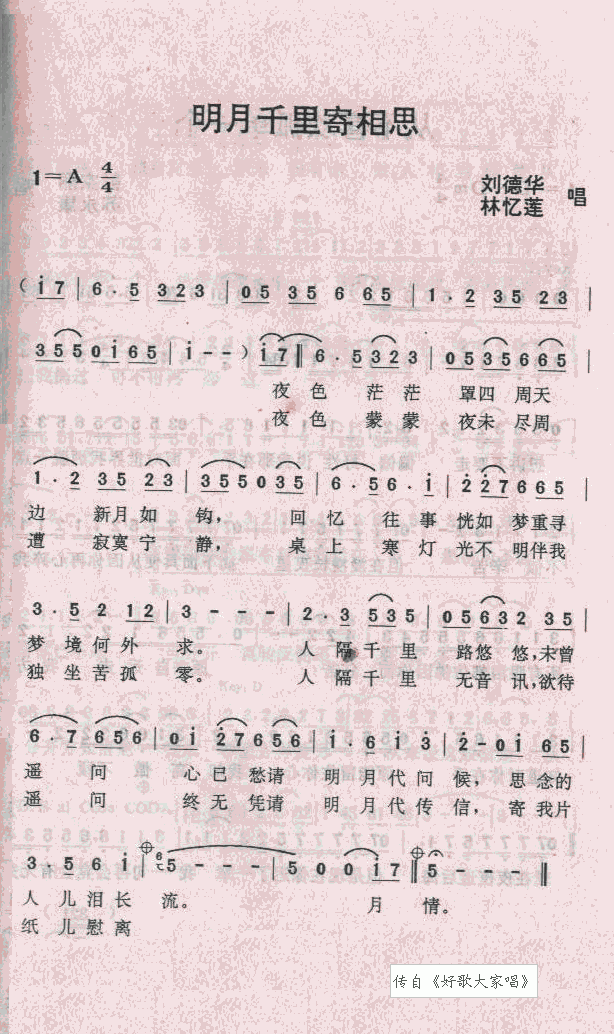 明月千里寄相思
1=A 4/4
刘德华
林忆莲 唱
(i̇7 | 6·5 323 | 05 35 6 65 | 1·2 35 23 |
355 0i̇65 | i̇-- ) i̇7 ‖ 6·5 323 | 0535665 |
夜色 茫茫 罩四 周天
夜色 蒙蒙 夜未 尽周
1·2 35 23 | 355035 | 6·56·i̇ | 2̇2̇7665 |
边 新月如 钩, 回忆 往事 恍如 梦重寻
遭 寂寞宁 静, 桌上 寒灯 光不 明伴我
3·52 12 | 3--- | 2·3 535 | 05632 35 |
梦境何处 求。 人隔千里 路悠 悠,未曾
独坐苦孤 零。 人隔千里 无音 讯,欲待
6·7656 | 0i̇ 2̇7656 | i̇·6i̇3̇ | 2̇-0i̇65 |
遥问 心已愁请 明月代问 候, 思念的
遥问 终无凭请 明月代传 信, 寄我片
3·56i̇ | 65--- | 500i̇7 ‖ 5--- ‖
人儿泪长 流。 月 情。
纸儿慰离
传自《好歌大家唱》